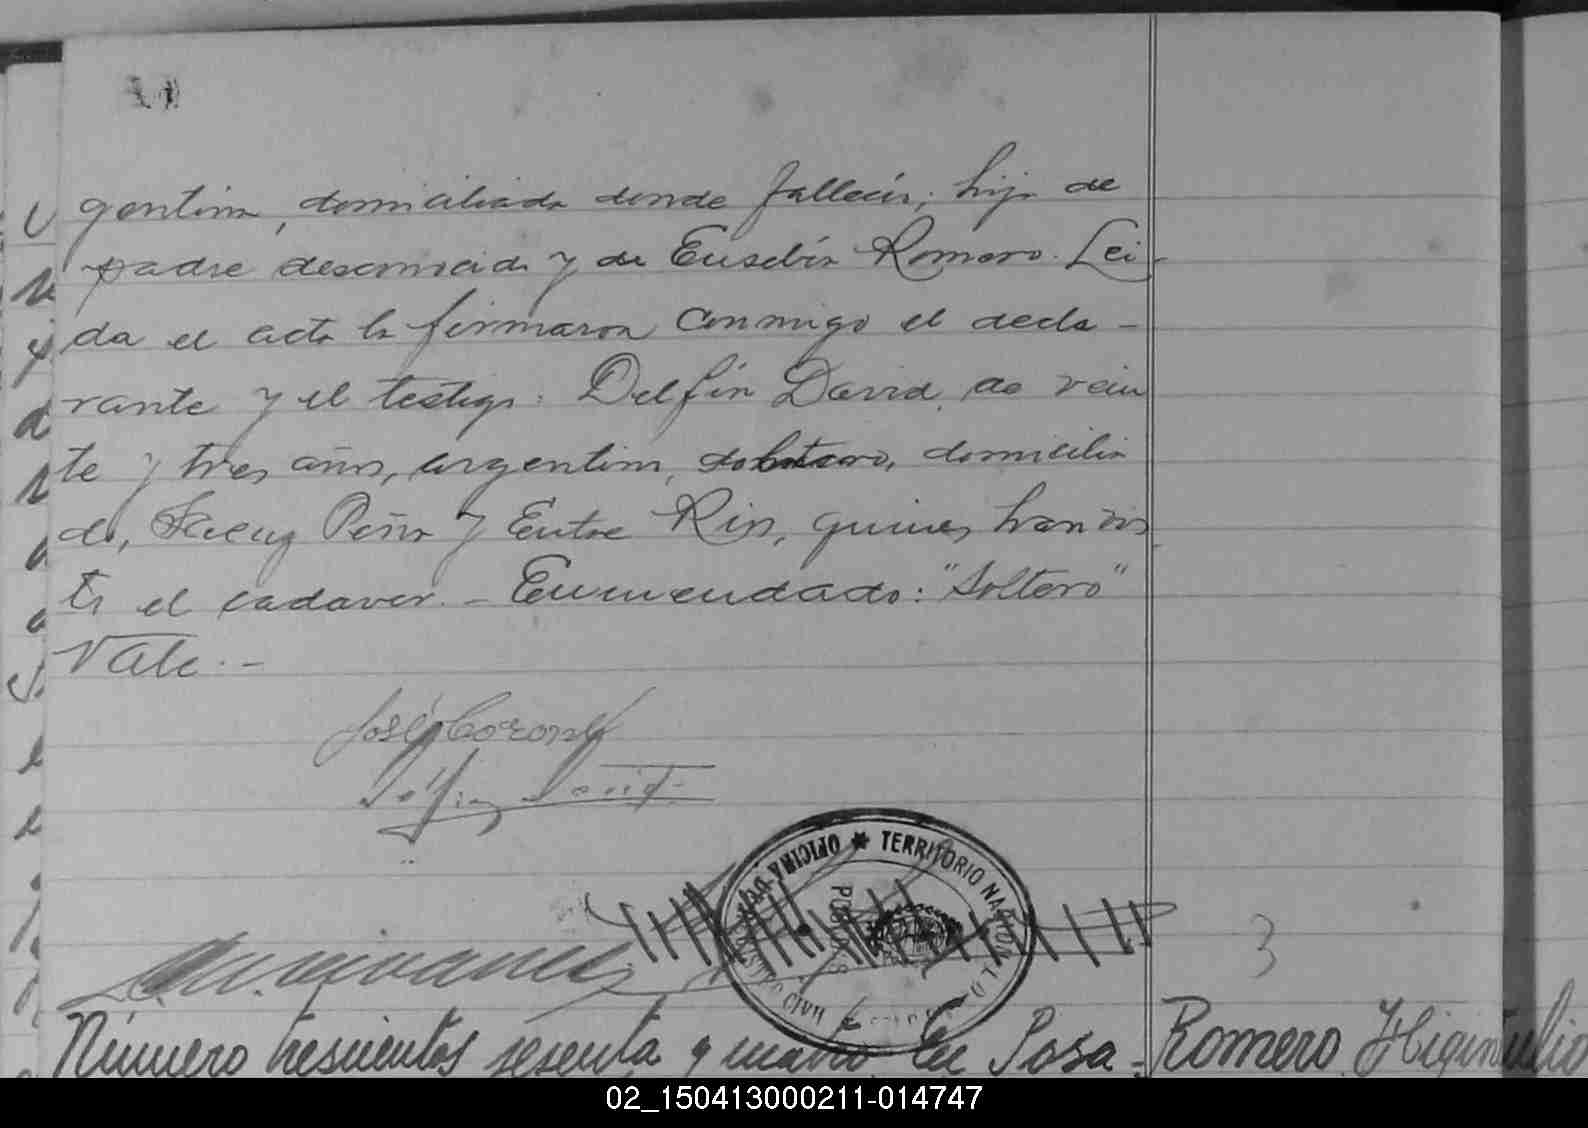 gentino, domiciliado donde falleció; hijo de
padre desconocido y de Eusebia Romero. Lei-
da el acta la firmaron conmigo el decla-
rante y el testigo: Delfín David, de vein
te y tres años, argentino, soltero, domicilia
do, Saenz Peña y Entre Rios, quienes han vis
to el cadaver. - Enmendado: "Soltero"
Vale. -
José Coronel
Delfin David
OFICINA ★ TERRITORIO NACIONAL
POSADAS
3
Número trescientos sesenta y cuatro. En Posa-
Romero Higin
02_150413000211-014747